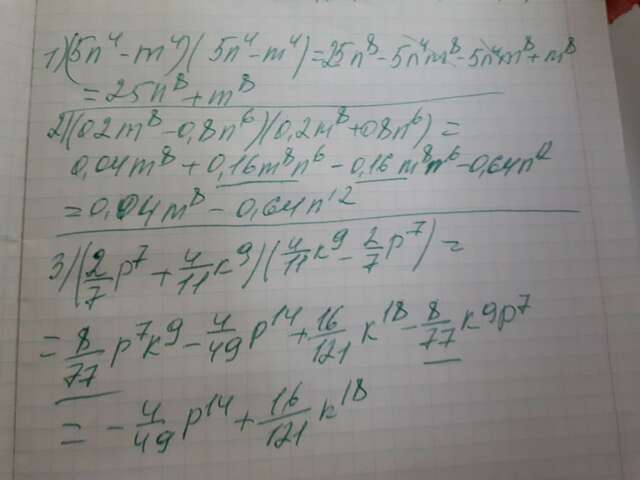 1)(5n⁴-m⁴)(5n⁴-m⁴)=25n⁸-5n⁴m⁸-5n⁴m⁸+m⁸
=25n⁸+m⁸
2)(0,2m⁸-0,8n⁶)(0,2m⁸+0,8n⁶)=
0,04m⁸+0,16m⁸n⁶-0,16m⁸n⁶-0,64n¹²
=0,04m⁸-0,64n¹²
3)(2/7p⁷+4/11k⁹)(4/11k⁹-2/7p⁷)=
=8/77p⁷k⁹-4/49p¹⁴+16/121k¹⁸-8/77k⁹p⁷
=-4/49p¹⁴+16/121k¹⁸